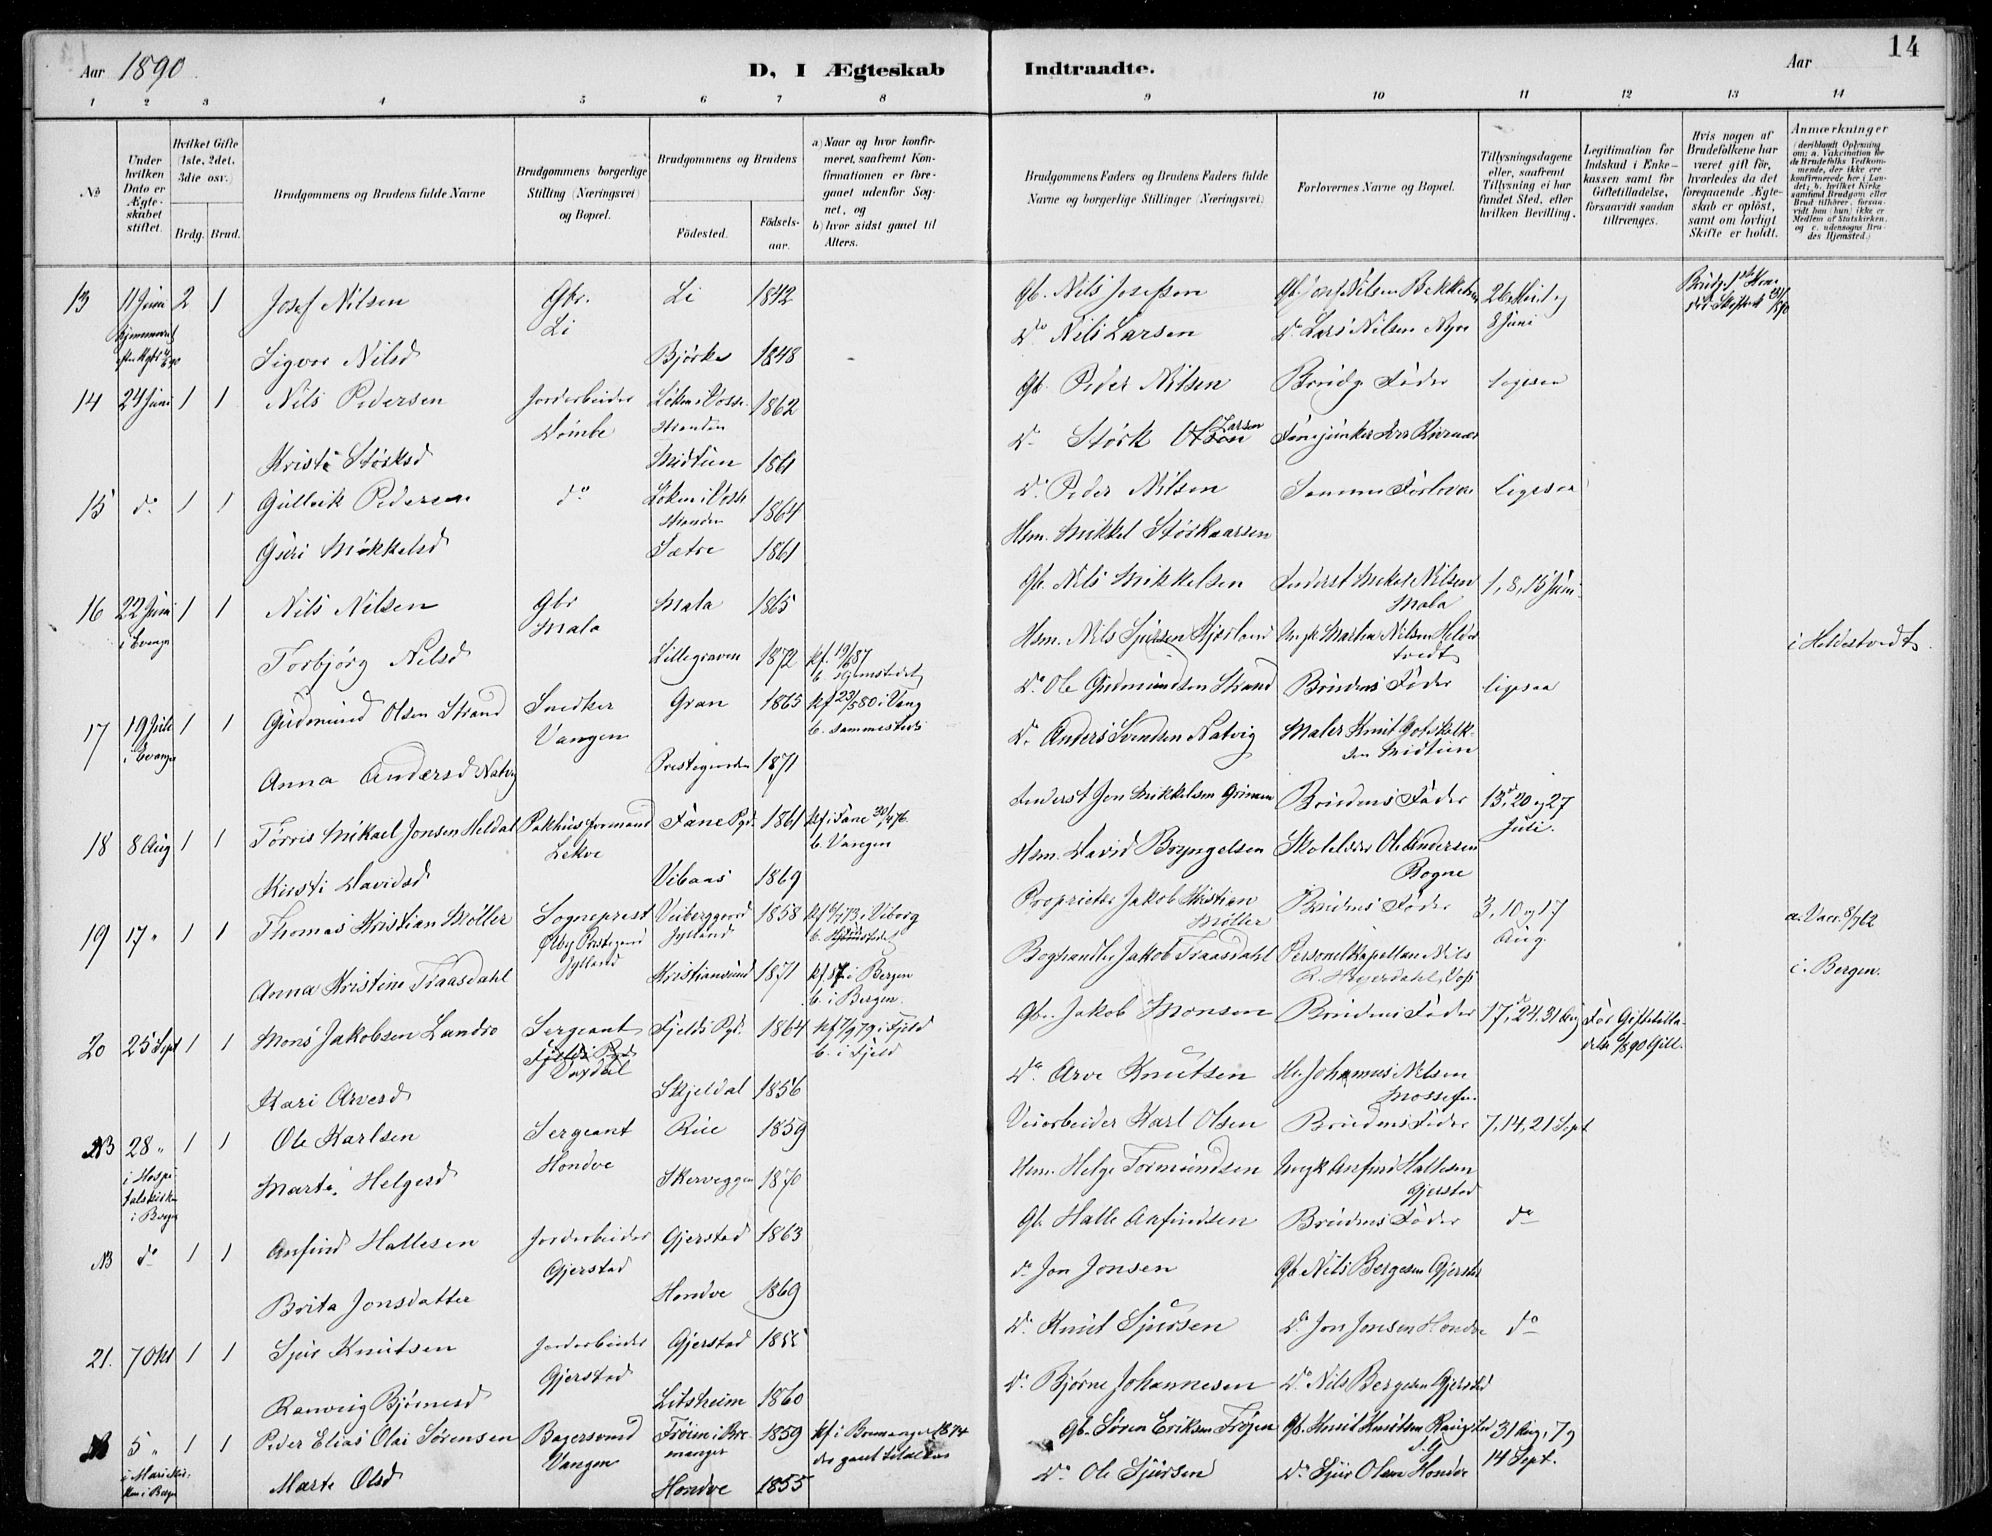 14
Aar 1890
D, I Ægteskab
Indtraadte.
Aar
1 2 3 4 5 6 7 8
9 10 11 12 13 14
No
Under hvilken Dato er Ægteskabet stiftet.
Hvilket Gifte (1ste, 2det, 3die osv.)
Brdg. Brud.
Brudgommens og Brudens fulde Navne
Brudgommens borgerlige Stilling (Næringsvei) og Bopæl.
Brudgommens og Brudens
Födested.
Födselsaar.
a) Naar og hvor konfirmeret, saafremt Konfirmationen er foregaaet udenfor Sognet, og
b) hvor sidst gaaet til Alters.
Brudgommens Faders og Brudens Faders fulde Navne og borgerlige Stillinger (Næringsvei)
Forlovernes Navne og Bopæl.
Tillysningsdagene eller, saafremt Tillysning ei har fundet Sted, efter hvilken Bevilling.
Legitimation for Indskud i Enkekassen samt for Giftetilladelse, forsaavidt saadan tiltrænges.
Hvis nogen af Brudefolkene har været gift för, hvorledes da det foregaaende Ægteskab er oplöst, samt om lovligt Skifte er holdt.
Anmærkninger
(deriblandt Oplysning om: a. Vakcination for de Brudefolks Vedkommende, der ikke ere konfirmerede her i Landet; b. hvilket Kirkesamfund Brudgom eller Brud tilhörer, forsaavidt han (hun) ikke er Medlem af Statskirken, og c. udensogns Brudes Hjemsted.)
13 11 Juni 2 1 Josef Nilsen Gbr. Li 1842 Gb. Nils Josefsen Gb. Josef Nilsen Bekkelien 26 Mai og
Li 8 Juni
Sigvor Nilsd Bjørke 1848 Do Nils Larsen Do Lars Nilsen
14 24 Juni 1 1 Nils Pedersen Jordarbeider Løken i Vosse- 1862 Gb. Peder Nilsen Brudg Fader ligesaa
Dømbe stranden
Kristi Størksd Midtun 1861 Do Størk Larsen Fanejunker
15 do 1 1 Gulleik Pedersen do Løken i Vosse 1864 Do Peder Nilsen Samme Forlovere ligesaa
stranden
Guri Mikkelsd Sætre 1861 Hsm. Mikkel Størkaarsen
16 22 Juni 1 1 Nils Nilsen Gbr Mala 1865 Gb. Nils Mikkelsen Inderst Mikel Nilsen 1, 8, 15 Juni
i Evanger Mala Mala
Torbjörg Nilsd Lillegraven 1872 kf. 19/6 87 Hsm. Nils Sjursen Ungk Martin Nilsen Heldes i Heldestvedt
b. Hjemstedet tvedt
17 19 Juli 1 1 Gudmund Olsen Strand Snedker Gran 1865 kf 23/5 80 i Vang Do Ole Gudmundsen Strand Brudens Fader ligesaa
i Evanger Vangen b. sammesteds
Anna Andersd Natvig Prestegarden 1871 Do Anders Svendsen Natvig Maler Knut Gotskalk-
sen Midtun
18 8 Aug 1 1 Torris Mikael Jonsen Heldal Pakhusformand Fane Pgd. 1861 kf i Fane 30/4 76 Inderst Jon Mikkelsen Brudens Fader 13, 20 og 27
Lekve b. Vangen Juli.
Kristi Davidsd Vibaas 1869 Hsm. David Brynjelsen Skolelærer Ole Andersen
Rogne
19 17 " 1 1 Thomas Kristian Møller Sogneprest 1858 Proprietær Jakob Kristian Brudens Fader 3, 10 og 17 a. Vacc. 8/7 62
Prestegaard Jylland Møller Aug.
Jylland
Anna Kristine Fraasdahl Kristiansund 1871 kf. 87 i Bergen Boghandler Jakob Fraasdahl Personel Kapellan Nils c. Bergen.
b. i Bergen. Voss
20 25 Sept 1 1 Mons Jakobsen Landro Sergeant Fjelds Pgd. 1864 kf 79 i Fjeld Gb. Jakob Monsen Brudens Fader 17, 24, 31 Aug Før Giftetilla-
b. i Fjeld
Kari Arvesd Skjeldal 1856 Do Arve Knutsen Hr. Johannes Nilsen
NB 28 " 1 1 Ole Karlsen Sergeant Rue 1859 Veiarbeider Karl Olsen Brudens Fader 7, 14, 21 Sept
i Hospi- Hondve
talskirken
i Bergen
Marta Helgesd Skerveggen 1870 Hsm. Helge Tormundsen Ungk Anfind Hallesen
Gjerstad
NB do 1 1 Anfind Hallesen Jordarbeider Gjerstad 1863 Gb. Halle Anfindsen Brudens Fader do
Gjerstad
Brita Jonsdatter Hondve 1869 do Jon Jonsen Gb. Nils Bergesen Gjerstad
21. 7 Okt 1 1 Sjur Knutsen Jordarbeider Gjerstad Do Knut Sjursen Do Jon Jonsen Hondve do
Gjerstad
Ranveig Bjørnesd Litsheim 1860 Do Bjørne Johannesen Do Nils Bergesen Gjerstad
NB 5 " 1 1 Peder Elias Olai Sørensen Bagersvend Frøien i Bre- 1859 kf i Bremanger 1874 Gb. Søren Eriksen Frøjen Gb. Knut Knutsen 31 Aug, 7 og
Vangen manger 14 Sept.
i Bergen
Marta Olsd Hondve 1855 Do Ole Sjursen Do Sjur Olsen Hondve